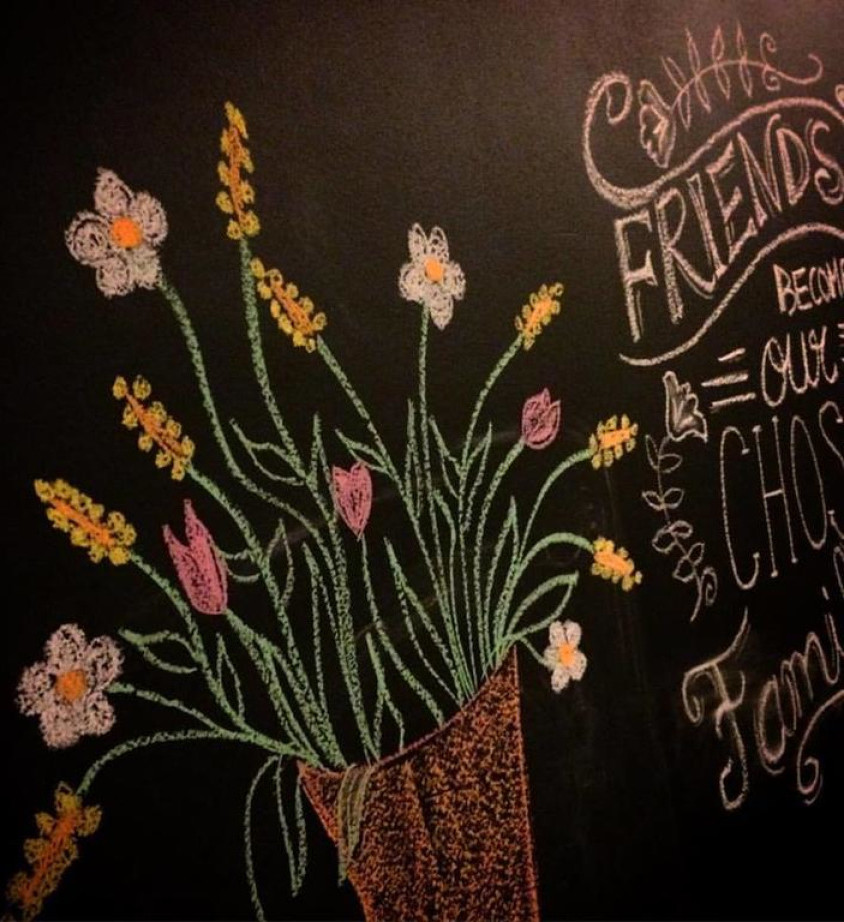 FRIENDS
BECOM
our
CHOS
Fami